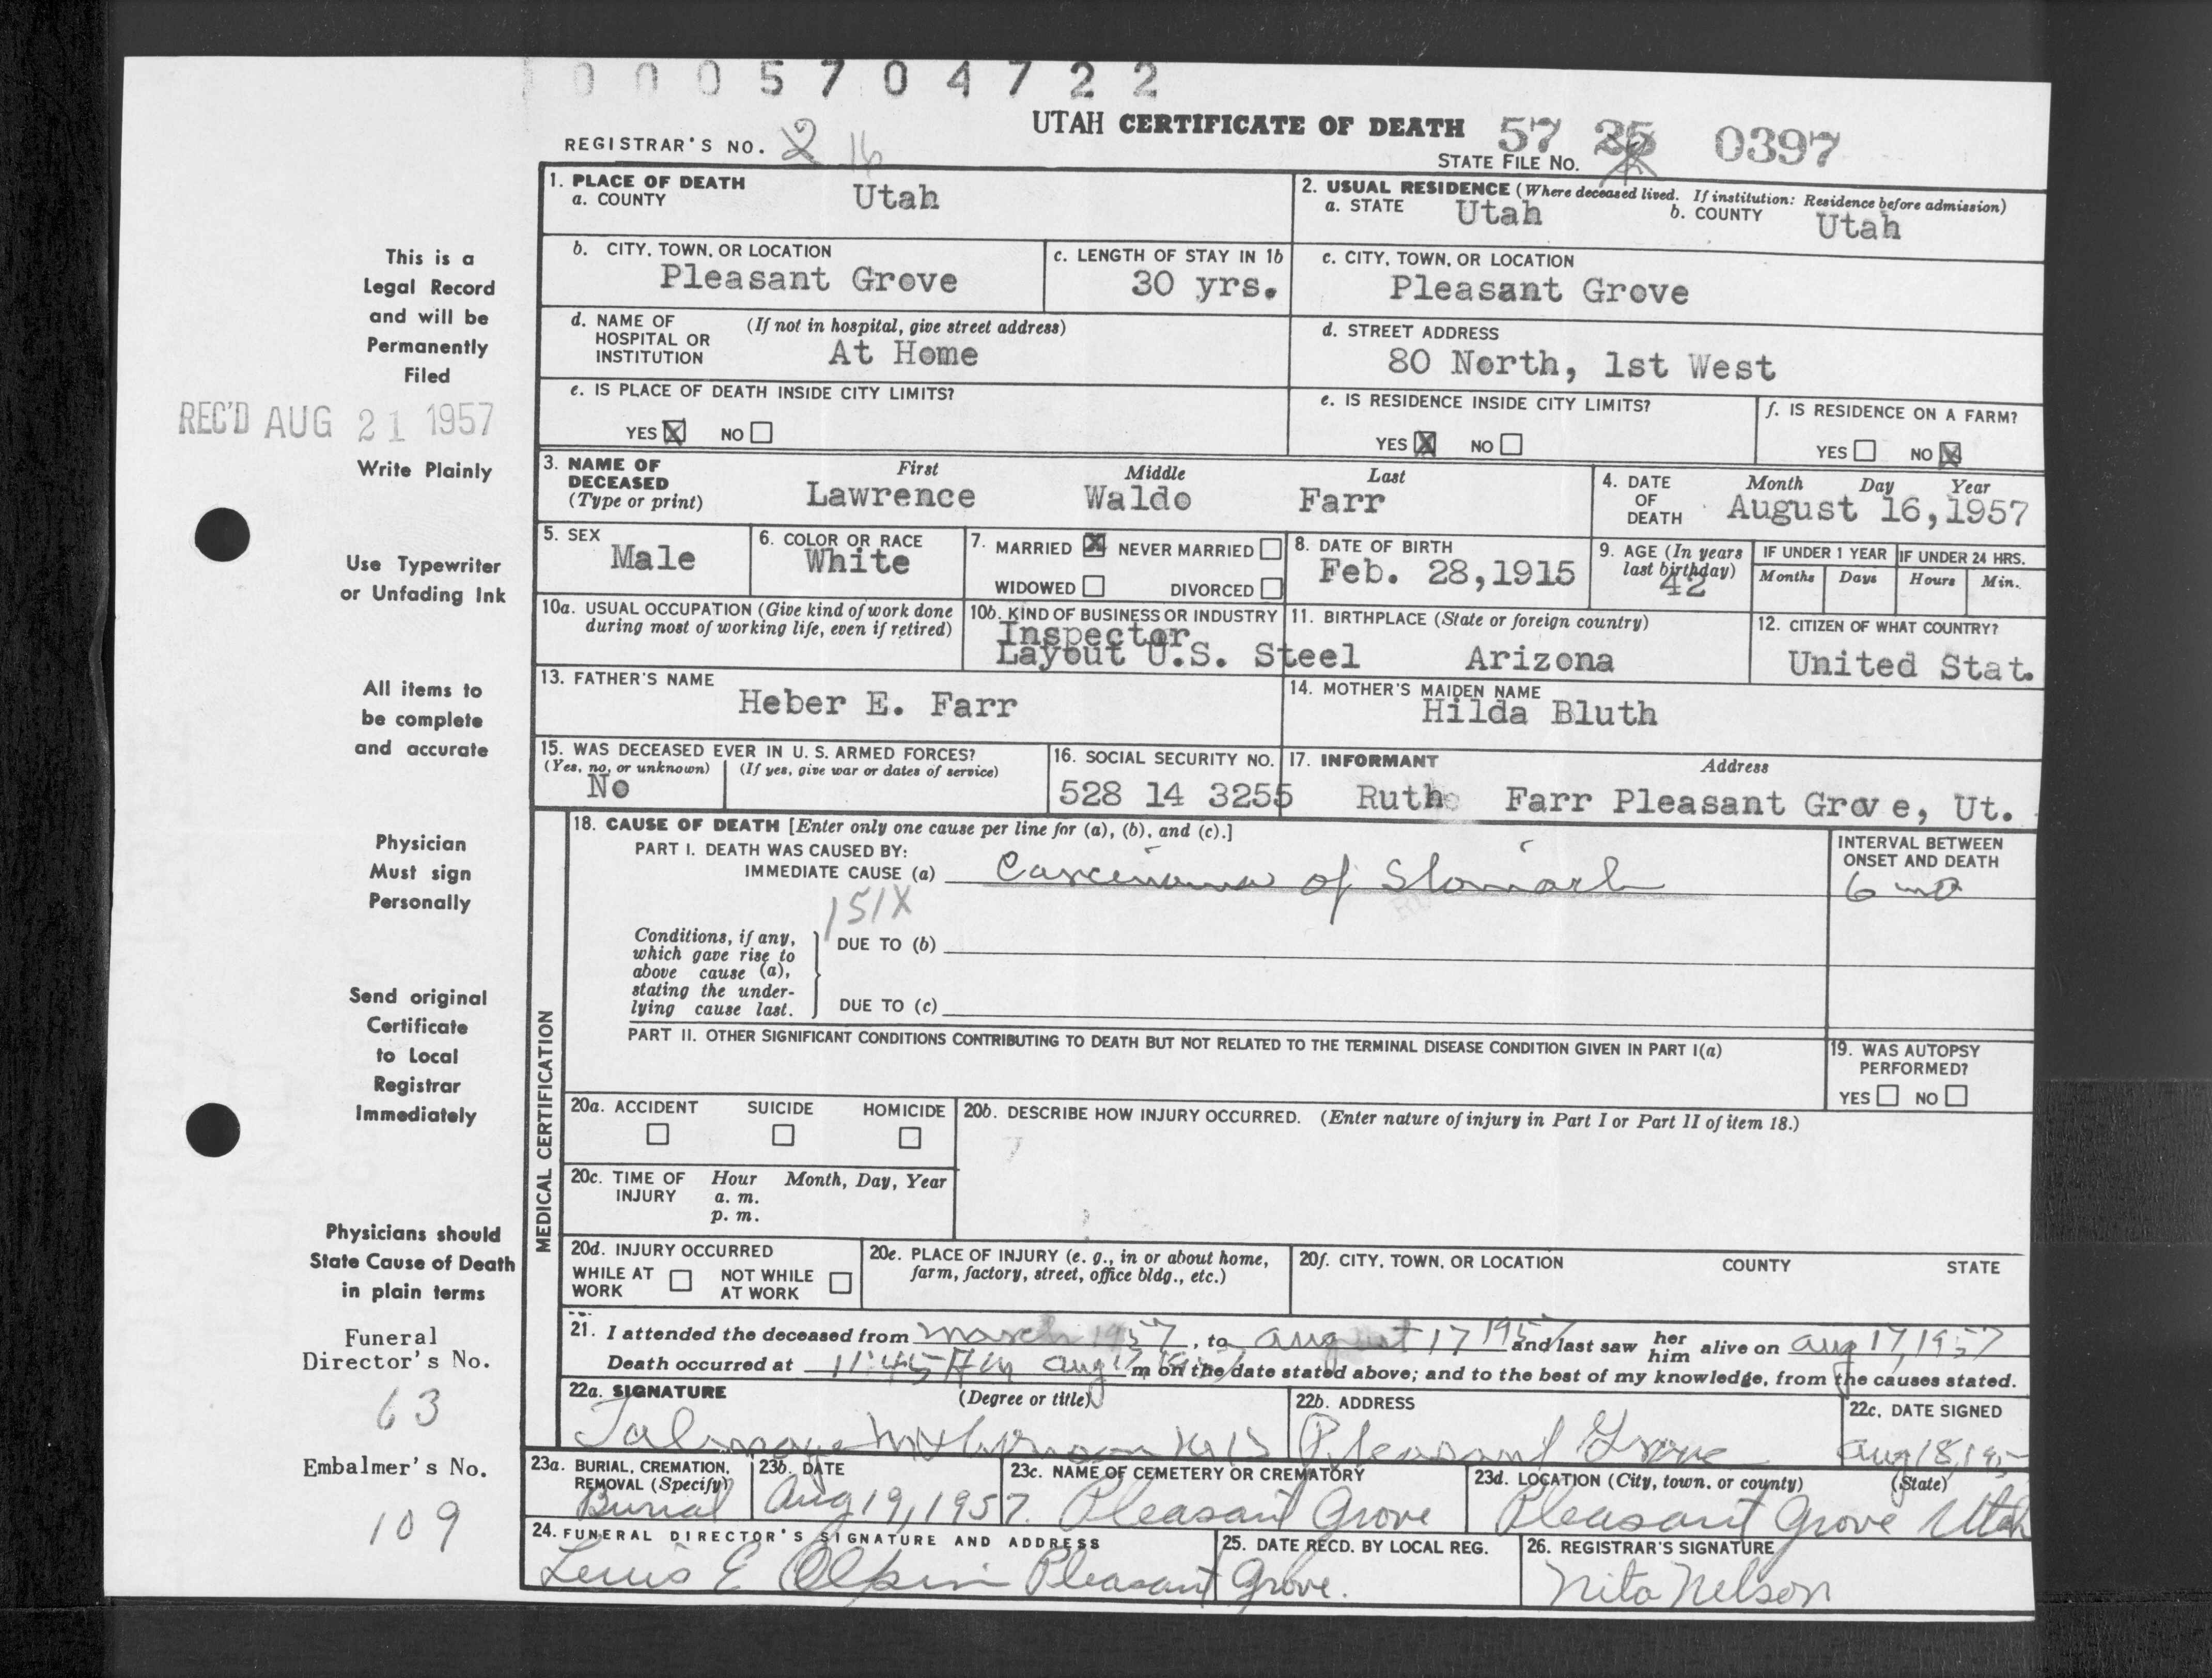 0 0 0 5 7 0 4 7 2 2
UTAH CERTIFICATE OF DEATH
57 25 0397
REGISTRAR'S NO. 2 16
STATE FILE NO.
1. PLACE OF DEATH
a. COUNTY Utah
2. USUAL RESIDENCE (Where deceased lived. If institution: Residence before admission)
a. STATE Utah b. COUNTY Utah
b. CITY, TOWN, OR LOCATION
Pleasant Grove
c. LENGTH OF STAY IN 1b
30 yrs.
c. CITY, TOWN, OR LOCATION
Pleasant Grove
d. NAME OF HOSPITAL OR INSTITUTION (If not in hospital, give street address)
At Home
d. STREET ADDRESS
80 North, 1st West
e. IS PLACE OF DEATH INSIDE CITY LIMITS?
YES X NO
e. IS RESIDENCE INSIDE CITY LIMITS?
YES X NO
f. IS RESIDENCE ON A FARM?
YES NO X
3. NAME OF DECEASED (Type or print)
First Middle Last
Lawrence Waldo Farr
4. DATE OF DEATH Month Day Year
August 16,1957
5. SEX
Male
6. COLOR OR RACE
White
7. MARRIED X NEVER MARRIED
WIDOWED DIVORCED
8. DATE OF BIRTH
Feb. 28,1915
9. AGE (In years last birthday)
42
IF UNDER 1 YEAR IF UNDER 24 HRS.
Months Days Hours Min.
10a. USUAL OCCUPATION (Give kind of work done during most of working life, even if retired)
10b. KIND OF BUSINESS OR INDUSTRY
Inspector
Layout U.S. Steel
11. BIRTHPLACE (State or foreign country)
Arizona
12. CITIZEN OF WHAT COUNTRY?
United Stat.
13. FATHER'S NAME
Heber E. Farr
14. MOTHER'S MAIDEN NAME
Hilda Bluth
15. WAS DECEASED EVER IN U. S. ARMED FORCES?
(Yes, no, or unknown) (If yes, give war or dates of service)
No
16. SOCIAL SECURITY NO.
528 14 3255
17. INFORMANT Address
Ruth Farr Pleasant Grove, Ut.
MEDICAL CERTIFICATION
18. CAUSE OF DEATH [Enter only one cause per line for (a), (b), and (c).]
PART I. DEATH WAS CAUSED BY:
IMMEDIATE CAUSE (a) Carcinoma of Stomach
INTERVAL BETWEEN ONSET AND DEATH
6 mo
151X
Conditions, if any, which gave rise to above cause (a), stating the underlying cause last.
DUE TO (b)
DUE TO (c)
PART II. OTHER SIGNIFICANT CONDITIONS CONTRIBUTING TO DEATH BUT NOT RELATED TO THE TERMINAL DISEASE CONDITION GIVEN IN PART I(a)
19. WAS AUTOPSY PERFORMED?
YES NO
20a. ACCIDENT SUICIDE HOMICIDE
20b. DESCRIBE HOW INJURY OCCURRED. (Enter nature of injury in Part I or Part II of item 18.)
20c. TIME OF INJURY Hour Month, Day, Year
a. m.
p. m.
20d. INJURY OCCURRED
WHILE AT WORK NOT WHILE AT WORK
20e. PLACE OF INJURY (e. g., in or about home, farm, factory, street, office bldg., etc.)
20f. CITY, TOWN, OR LOCATION COUNTY STATE
21. I attended the deceased from March 1957, to August 17 1957 and last saw her him alive on Aug 17, 1957
Death occurred at 11:45 AM Aug 17 m on the date stated above; and to the best of my knowledge, from the causes stated.
22a. SIGNATURE (Degree or title)
22b. ADDRESS
Pleasant Grove
22c. DATE SIGNED
Aug 18, 195
23a. BURIAL, CREMATION, REMOVAL (Specify)
Burial
23b. DATE
Aug 19, 1957.
23c. NAME OF CEMETERY OR CREMATORY
Pleasant Grove
23d. LOCATION (City, town, or county) (State)
Pleasant Grove Utah
24. FUNERAL DIRECTOR'S SIGNATURE AND ADDRESS
Lewis E Olpin Pleasant Grove.
25. DATE RECD. BY LOCAL REG.
26. REGISTRAR'S SIGNATURE
Nita Nelson
This is a
Legal Record
and will be
Permanently
Filed
REC'D AUG 21 1957
Write Plainly
Use Typewriter
or Unfading Ink
All items to
be complete
and accurate
Physician
Must sign
Personally
Send original
Certificate
to Local
Registrar
Immediately
Physicians should
State Cause of Death
in plain terms
Funeral
Director's No.
63
Embalmer's No.
109